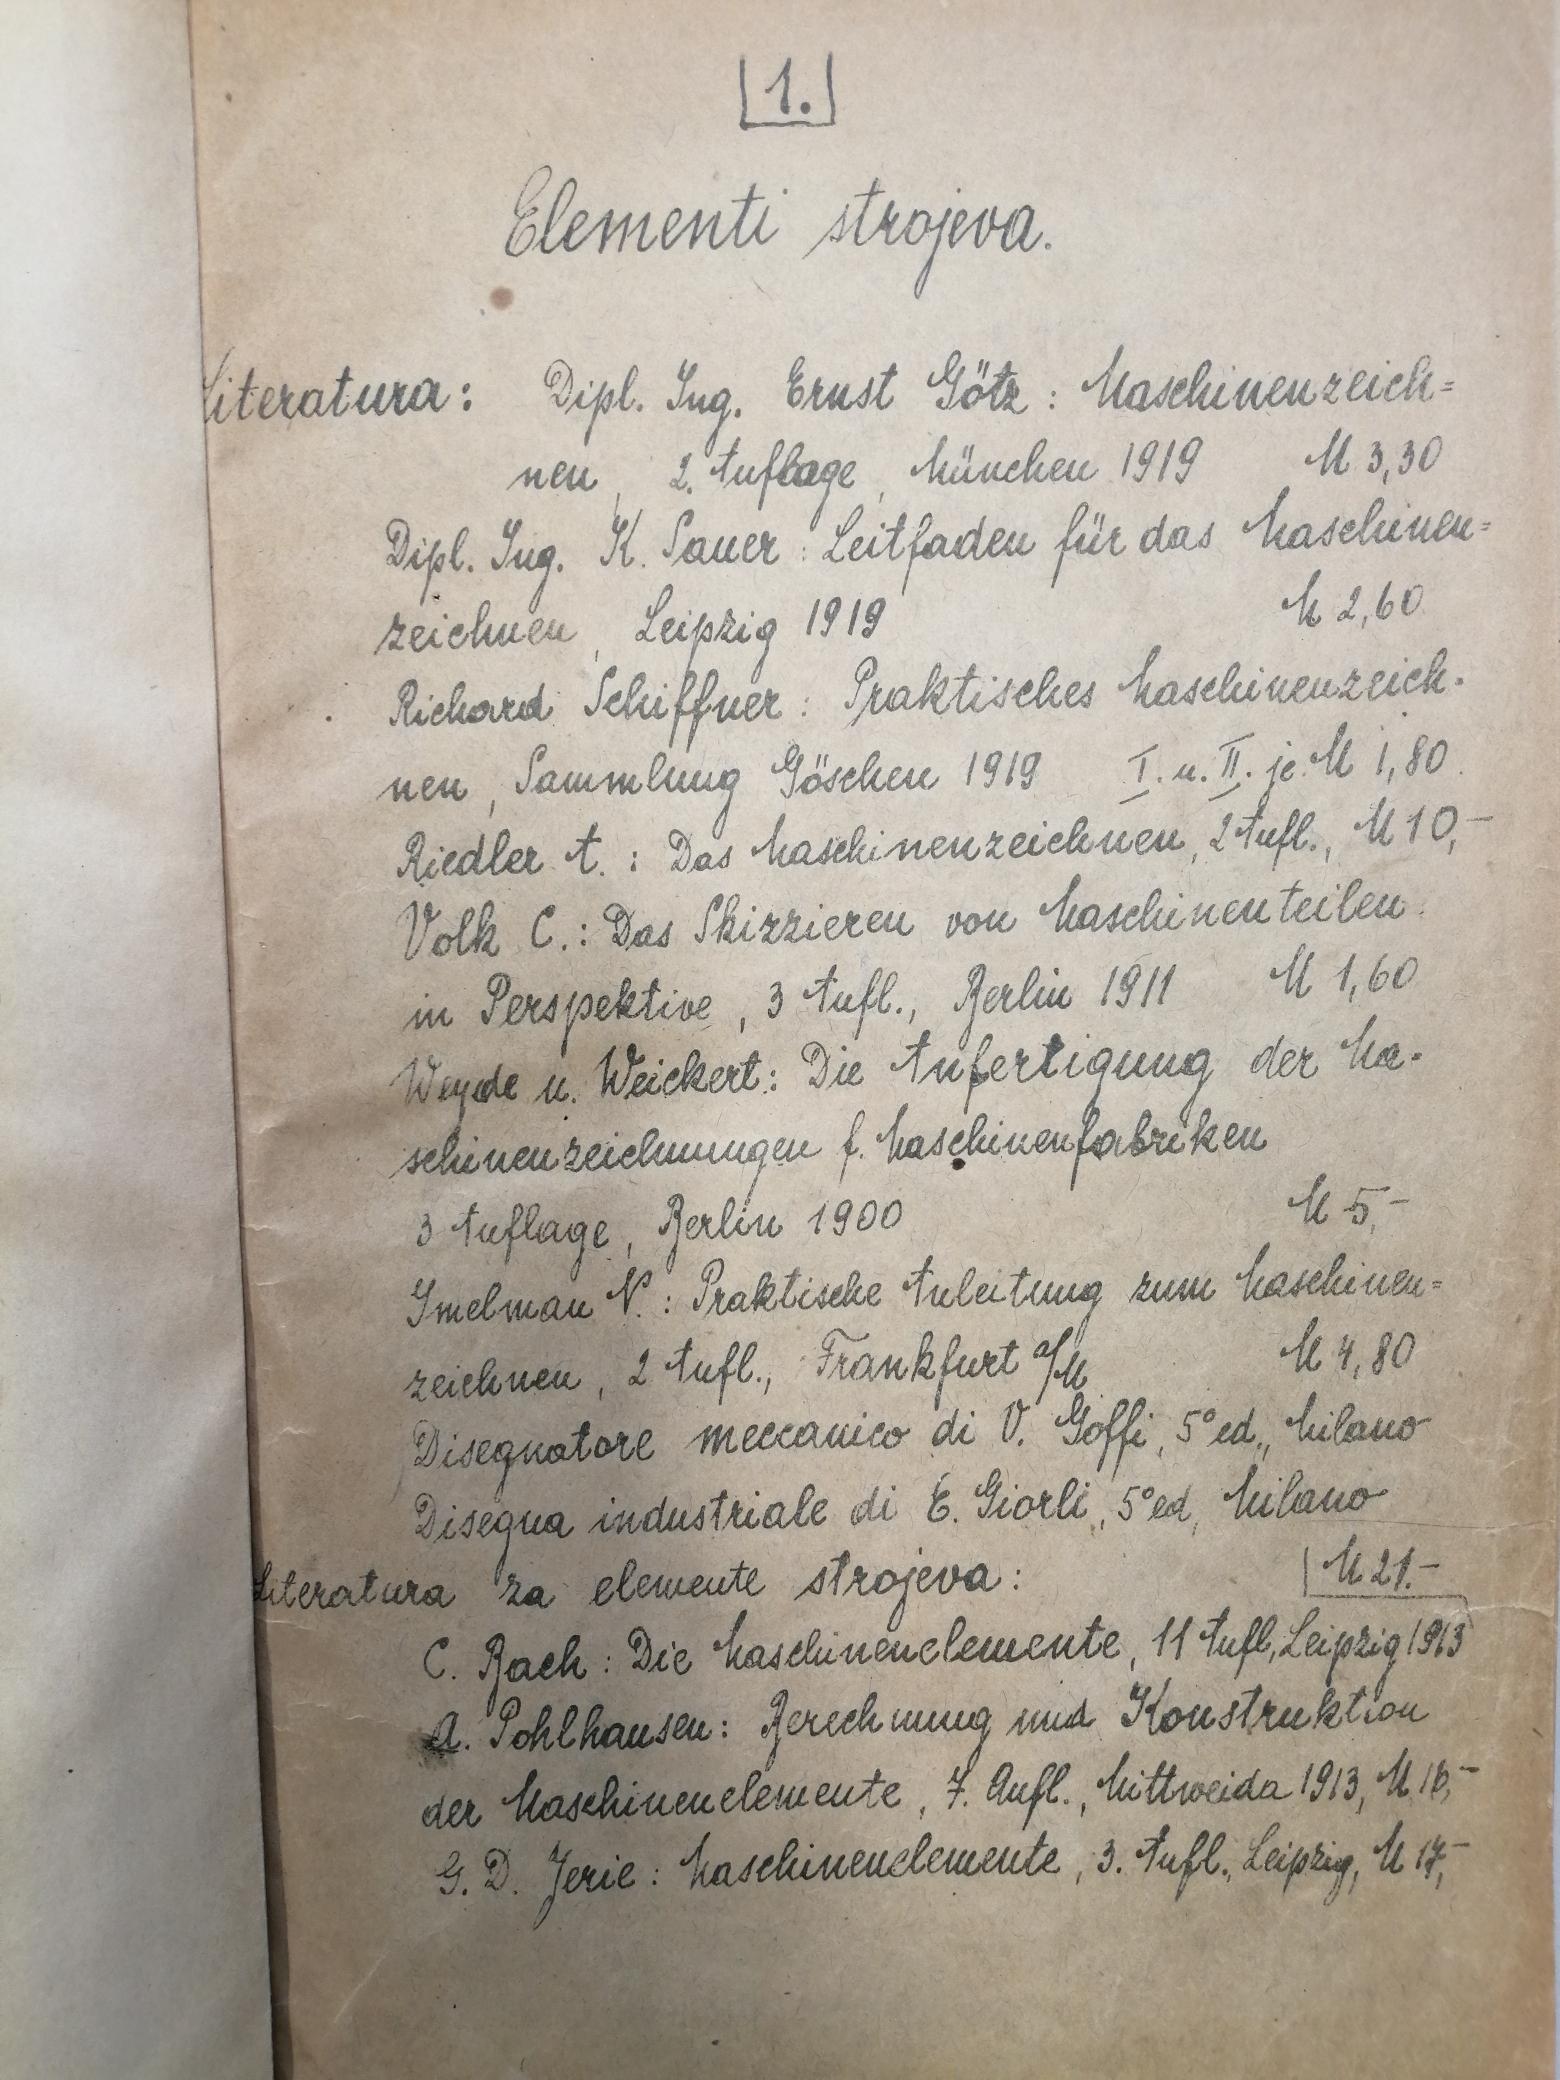 1.
Elementi strojeva.
Literatura: Dipl. Ing. Ernst Götz: Maschinenzeich=
nen, 2. Auflage, München 1919 M 3,30
Dipl. Ing. K. Sauer: Leitfaden für das Maschinen=
zeichnen, Leipzig 1919 M 2,60
Richard Schiffner: Praktisches Maschinenzeich-
nen, Sammlung Göschen 1919 I. u. II. je M 1,80
Riedler A.: Das Maschinenzeichnen, 2 Aufl., M 10,-
Volk C.: Das Skizzieren von Maschinenteilen
in Perspektive, 3 Aufl., Berlin 1911 M 1,60
Weyde u. Weickert: Die Anfertigung der Ma-
schinenzeichnungen f. Maschinenfabriken
3 Auflage, Berlin 1900 M 5,-
Imelman N.: Praktische Anleitung zum Maschinen=
zeichnen, 2 Aufl., Frankfurt a/M M 4,80
Disegnatore meccanico di V. Goffi, 5° ed., Milano
Disegna industriale di E. Giorli, 5° ed, Milano
Literatura za elemente strojeva: M 21.-
C. Bach: Die Maschinenelemente, 11 Aufl, Leipzig 1913
A. Pohlhausen: Berechnung und Konstruktion
der Maschinenelemente, 7. Aufl., Mittweida 1913, M
G. D. Jerie: Maschinenelemente, 3. Aufl., Leipzig, M 17,-